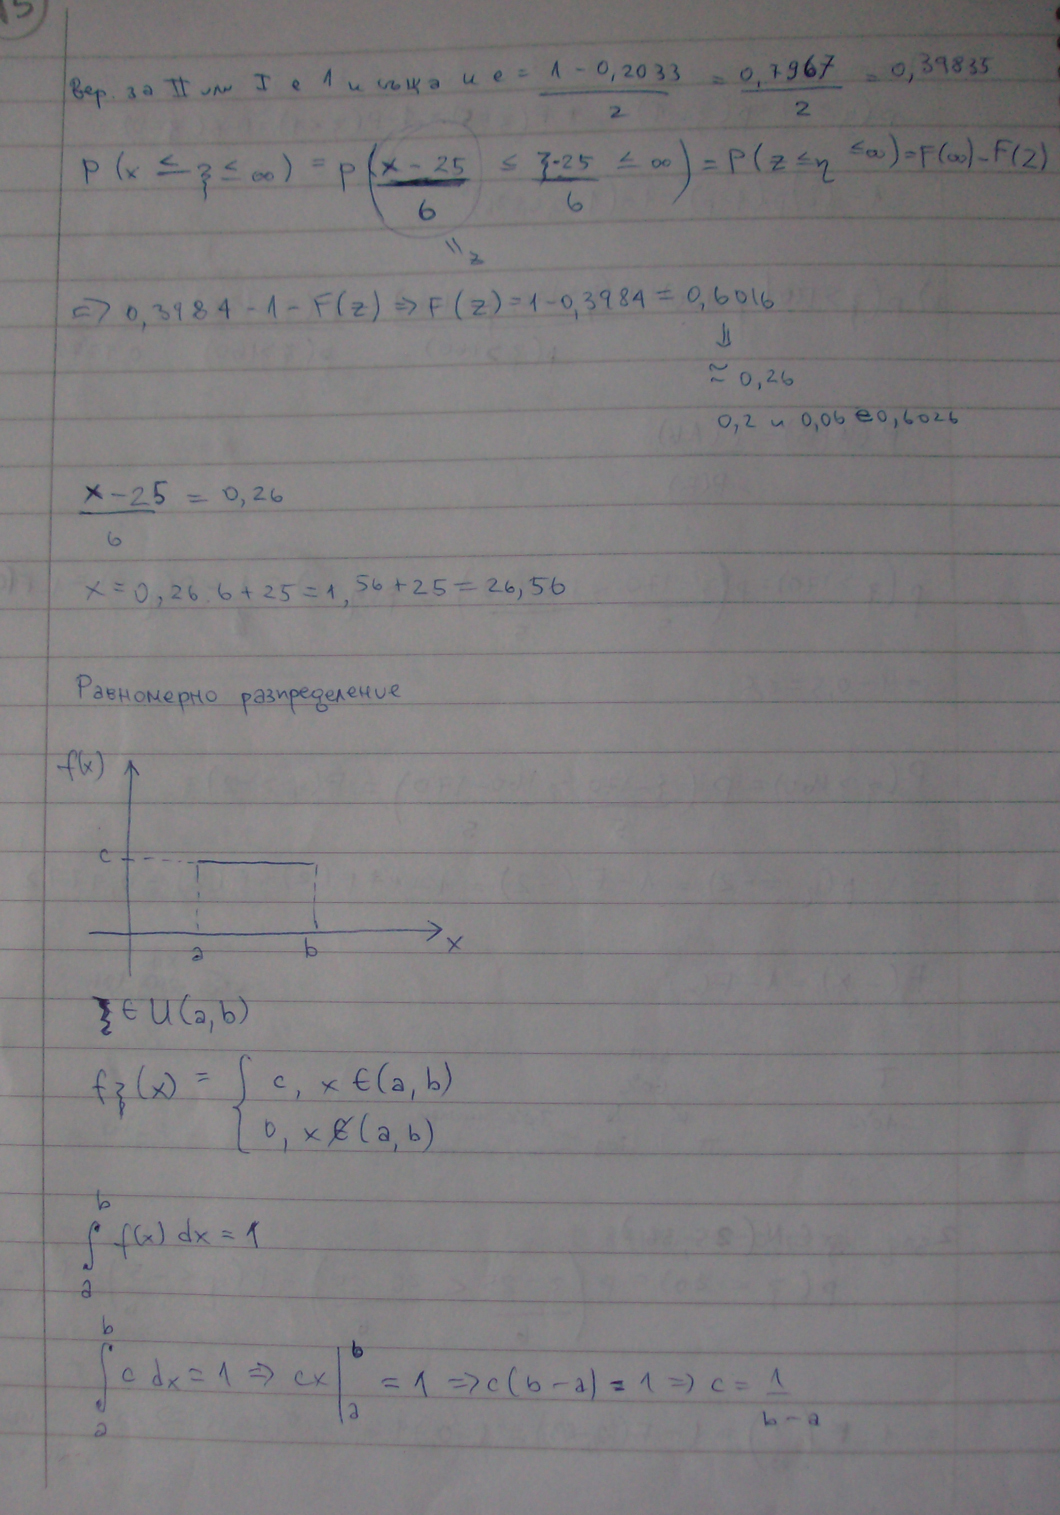 15
Вер. за II или I е 1 и съща и е = (1 - 0,2033)/2 = 0,7967/2 = 0,39835
P (x ≤ ξ ≤ ∞) = P((x - 25)/6 ≤ (ξ-25)/6 ≤ ∞) = P(z ≤ η ≤ ∞) = F(∞) - F(z)
" z
=> 0,3984 - 1 - F(z) => F(z) = 1 - 0,3984 = 0,6016
⇓
≈ 0,26
0,2 и 0,06 е 0,6026
(x - 25)/6 = 0,26
x = 0,26.6 + 25 = 1,56 + 25 = 26,56
Равномерно разпределение
f(x)
c
a b x
ξ ∈ U(a, b)
fξ(x) = { c, x ∈ (a, b)
0, x ∉ (a, b)
∫_a^b f(x) dx = 1
∫_a^b c dx = 1 => cx |_a^b = 1 => c(b - a) = 1 => c = 1/(b - a)